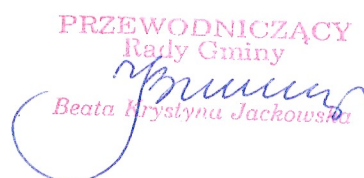 PRZEWODNICZĄCY
Rady Gminy
Beata Krystyna Jackowska